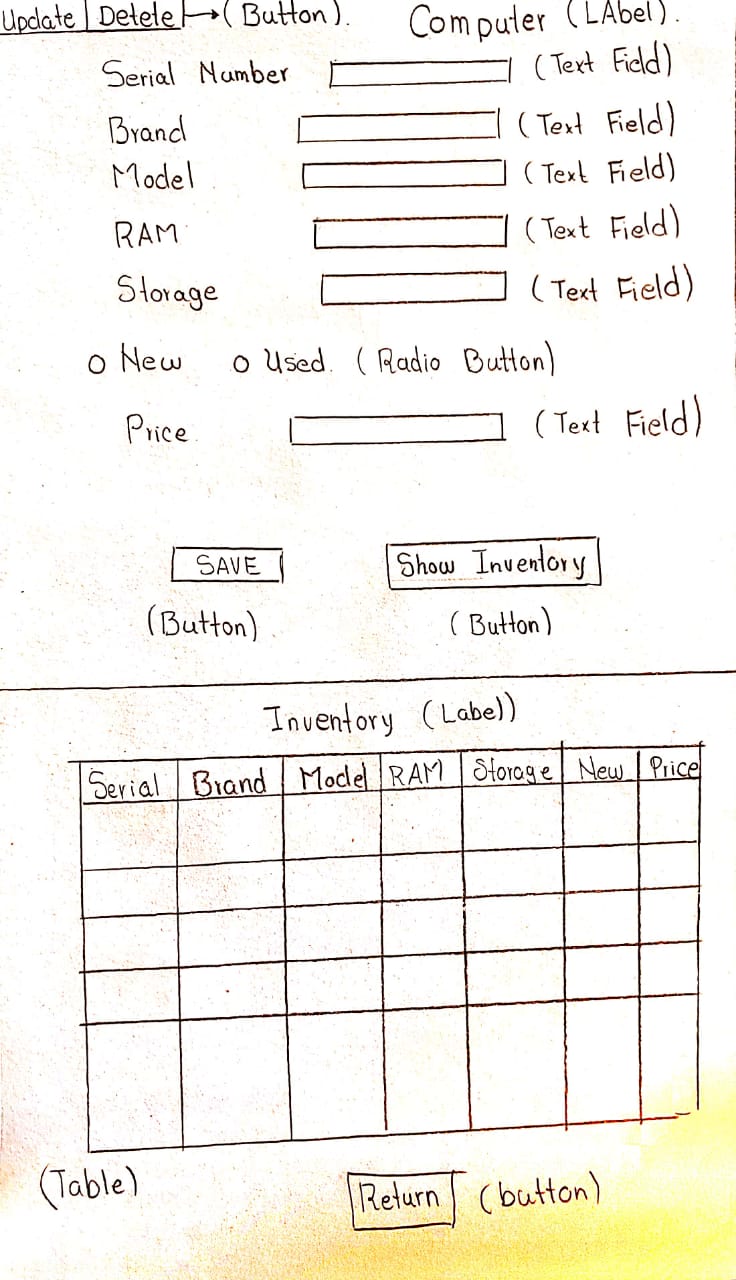 Update Detele →(Button). Computer (LAbel).
Serial Number (Text Field)
Brand (Text Field)
Model (Text Field)
RAM (Text Field)
Storage (Text Field)
o New o Used. (Radio Button)
Price (Text Field)
SAVE Show Inventory
(Button) (Button)
Inventory (Label)
Serial Brand Model RAM Storage New Price
(Table)
Return (button)